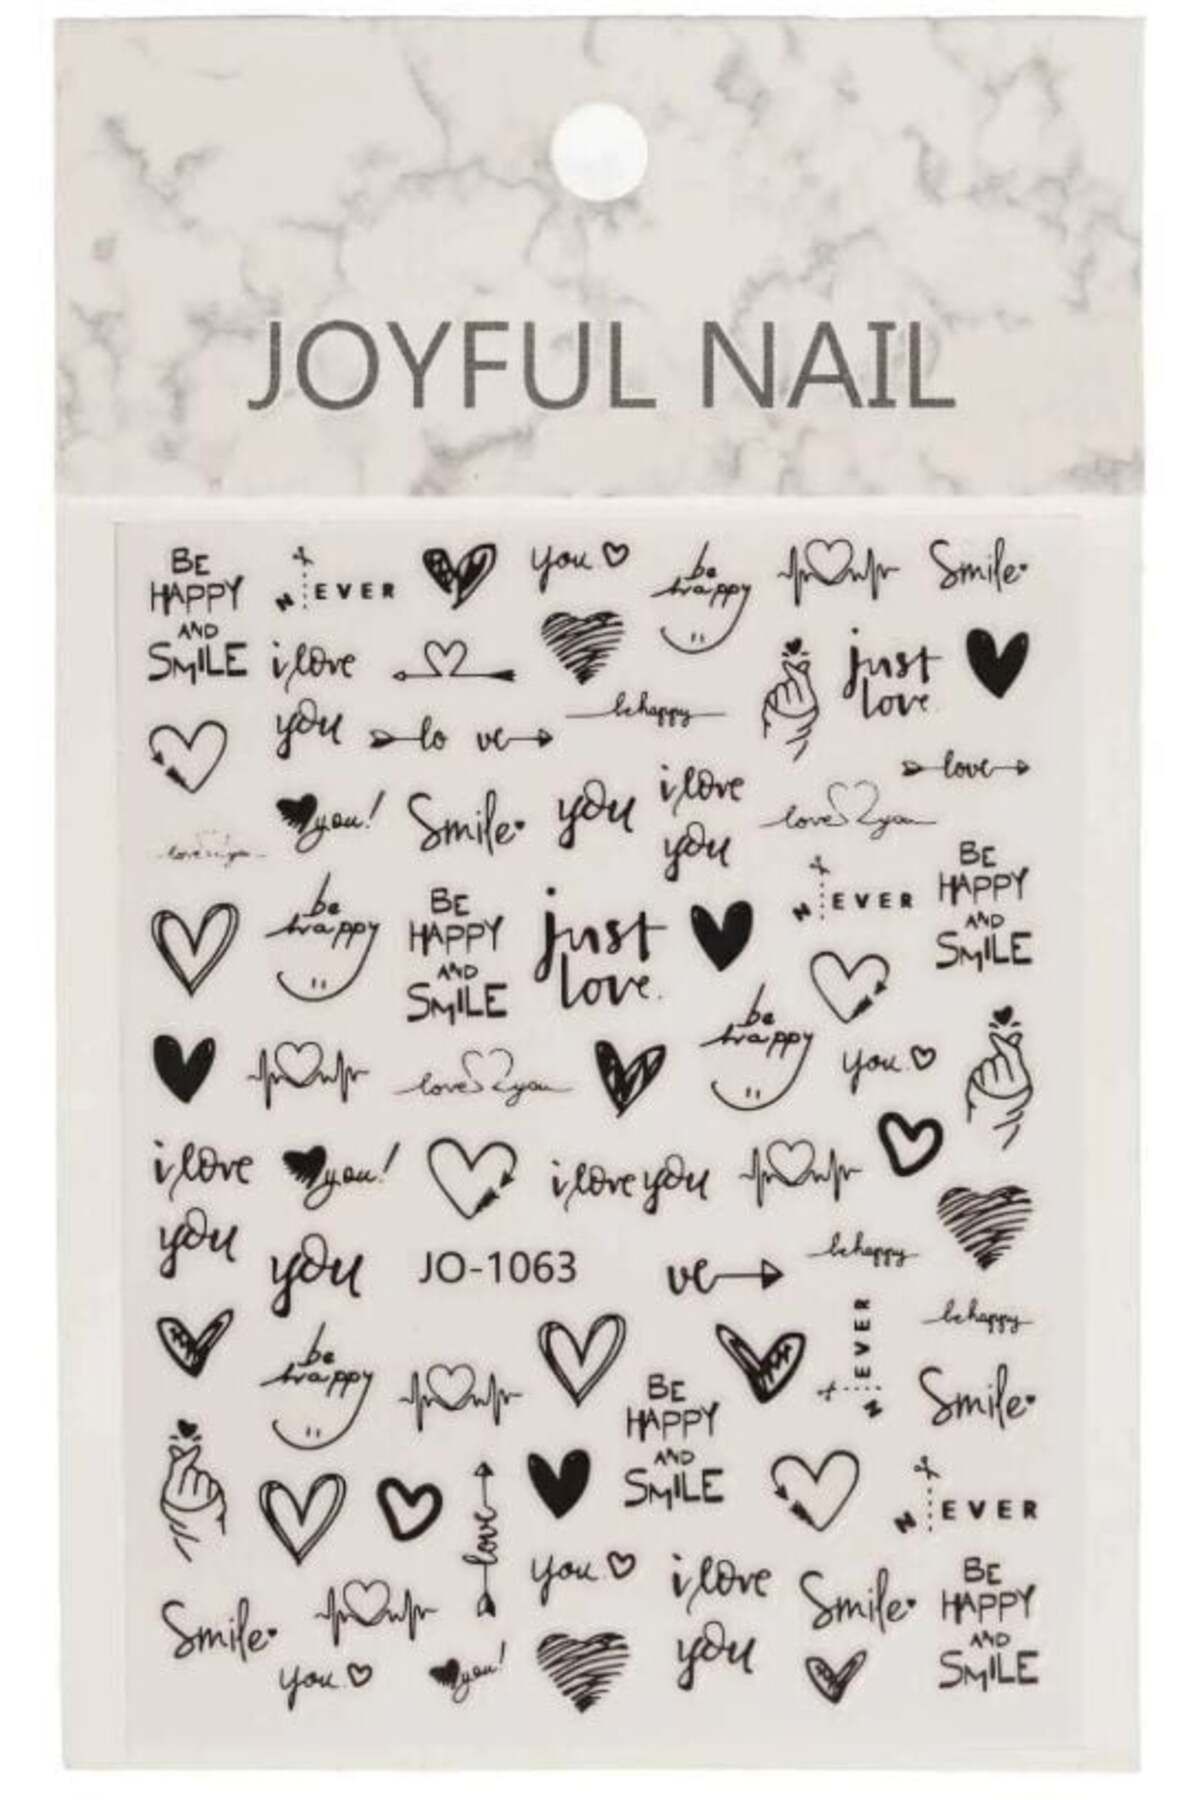 JOYFUL NAIL
BE
HAPPY
AND
SMILE
NEVER
you
be
happy
Smile
i love
you
just
love
be happy
lo ve
love
you!
Smile
you
i love
you
love you
love you
BE
HAPPY
AND
SMILE
NEVER
be
happy
BE
HAPPY
AND
SMILE
just
love.
be
happy
love you
you
i love
you
you!
i love you
you
JO-1063
ve
be happy
be happy
NEVER
be
happy
BE
HAPPY
AND
SMILE
Smile
love
NEVER
you
i love
you
Smile
BE
HAPPY
AND
SMILE
Smile
you
you!